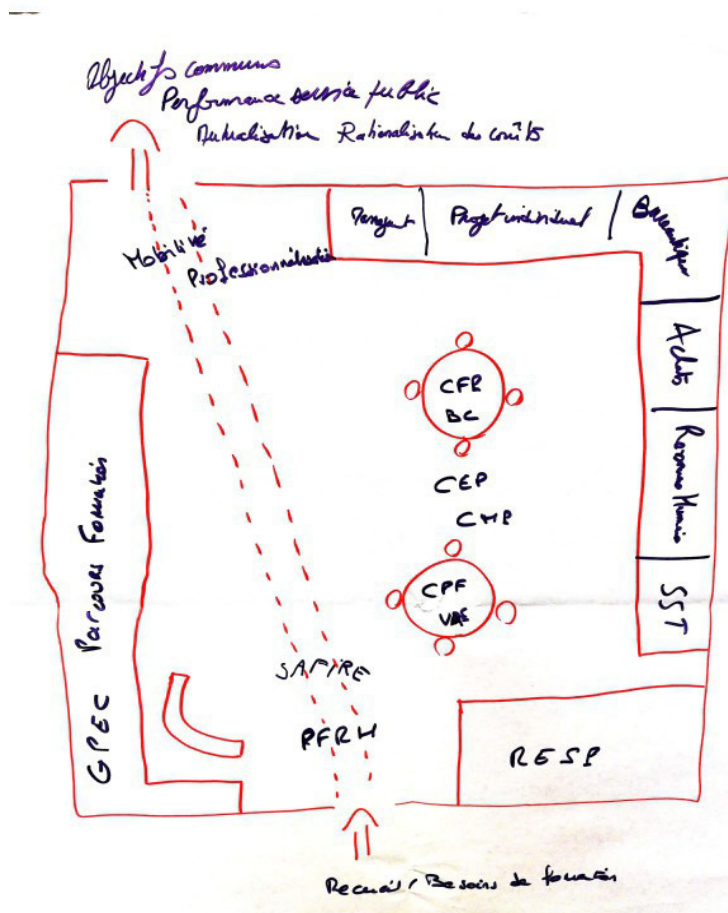 Objectifs communs
Performance service public
Mutualisation Rationalisation des coûts
Projet individuel
Bureautique
Mobilité
Professionnalisation
Achats
CFP
BC
Ressources Humaines
CEP
CMP
GPEC Parcours Formation
CPF
VAE
SST
SAFIRE
PFRH
RESP
Recueil / Besoins de formation